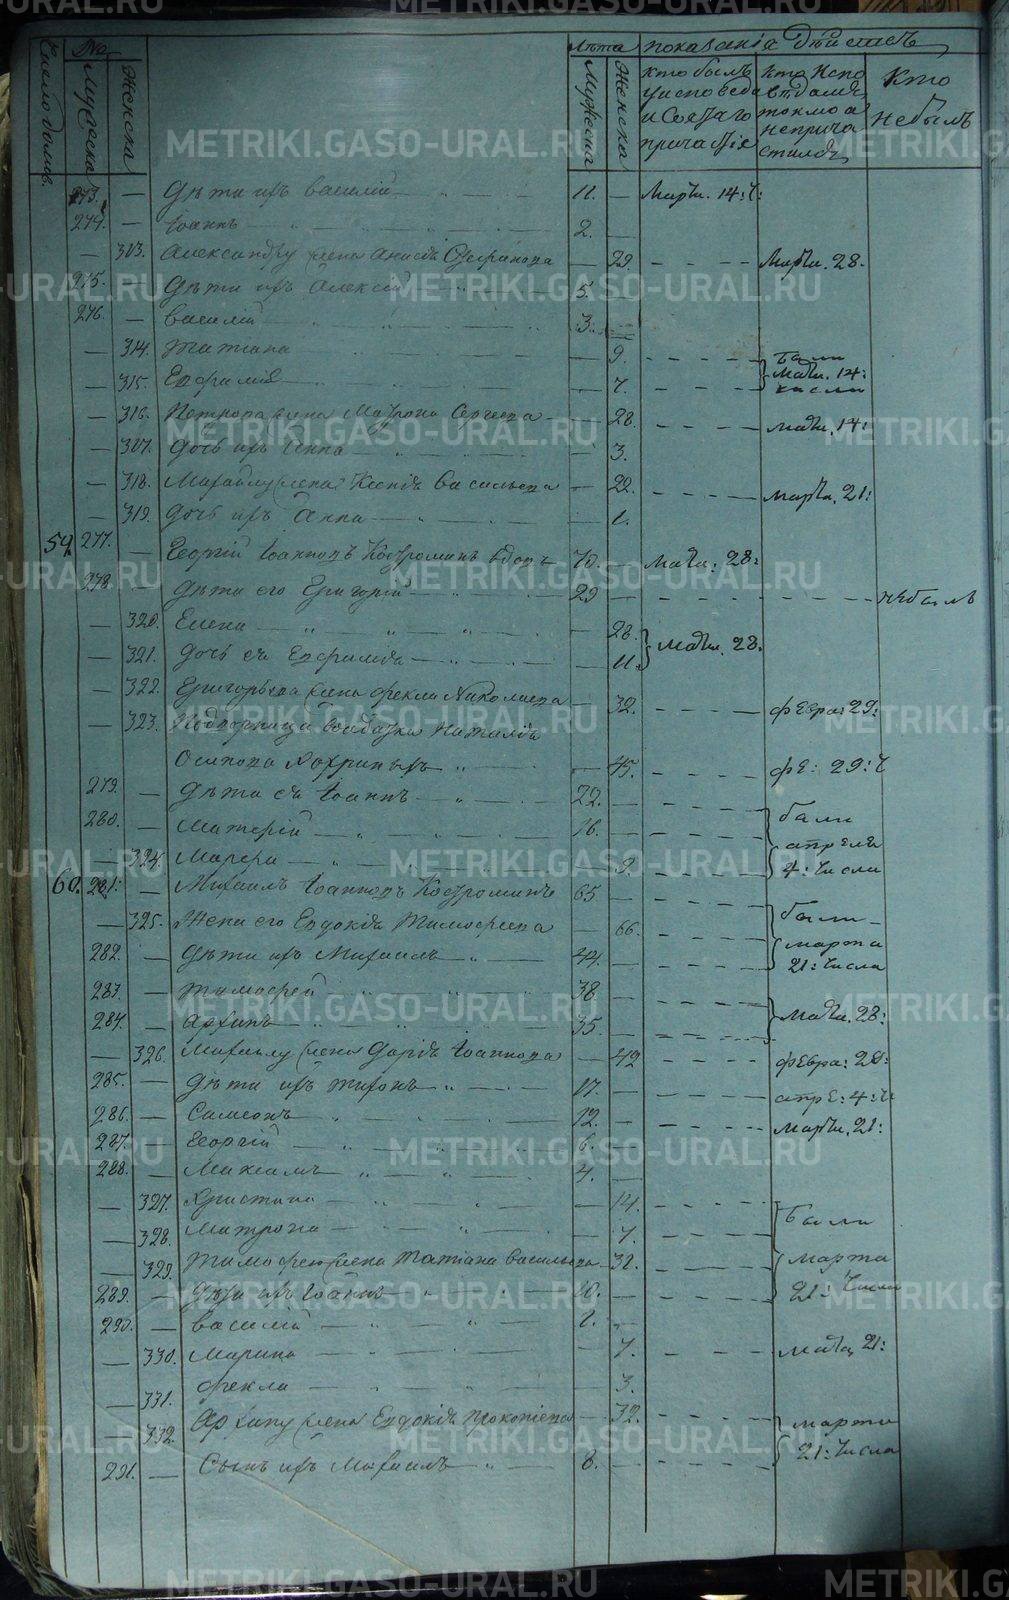 Число домов.
No
Мужеска
Женска
Лѣта
Мужеска
Женска
показанiя дѣйствъ
кто былъ у исповеди и Святаго причастiя
Кто Исповѣдался токмо а непричастился
Кто небылъ
273. — Дѣти ихъ Василiй — 11. — Марта. 14:ч:
274. — Iоаннъ — 2. —
— 313. Александру жена Анисiя — 29 Марта. 28.
275. — Дѣти ихъ Алексiй — 5. —
276. — Василiй — 3. —
— 314. Татiана — 9. Были
— 315. Евфимiя — 7. Марта. 14: числа
— 316. жена Матрона Сергеева — 28. Марта. 14:
— 317. Дочь ихъ Анна — 3.
— 318. Михаилу жена Ксенiя Васильева — 22. Марта. 21:
— 319. Дочь ихъ Анна — 1.
59. 277. — Георгiй Iоанновъ Костроминъ вдовъ 70. — Марта: 28:
278. — Дѣти его Григорiй — 29 — небылъ
— 320. Елена — 28. Марта. 28.
— 321. Дочь ея — 11.
— 322. Григорьева жена Фекла Николаева — 32. февра: 29:
— 323. Наталiя
Осипова — 45. фе: 29: ч
279. — Дѣти ея Iоаннъ — 22. — были
280. — — 16. — апреля
— 324. Марфа — 9 4: числа
60. 281: — Михаилъ Iоанновъ Костроминъ 65 — были
— 325. Жена его Евдокiя Тимофеева — 66. марта
282. — Дѣти ихъ Михаилъ — 44. — 21: числа
283. — Тимофей — 38. — Марта. 28:
284. — Архипъ — 35. —
— 326. Михаилу жена Дарiя Iоаннова — 42 февра: 28:
285. — Дѣти ихъ Тихонъ — 17. — апре: 4: ч
286. — Самсонъ — 12. — Марта. 21:
287. — Георгiй — 6. —
288. — Максимъ — 4. —
— 327. Христина — 14. Были
— 328. Матрона — 7.
— 329. Тимофею жена Татiана Васильева — 32. марта
289. — Дѣти ихъ Iоаннъ — 10. — 21: числа
290. — Василiй — 1. —
— 330. Марина — 7. Марта 21:
— 331. Фекла — 3.
— 332. Архипу жена Евдокiя Прокопiева — 32. марта
291. — Сынъ ихъ Михаилъ — 8. — 21: числа
METRIKI.GASO-URAL.RU